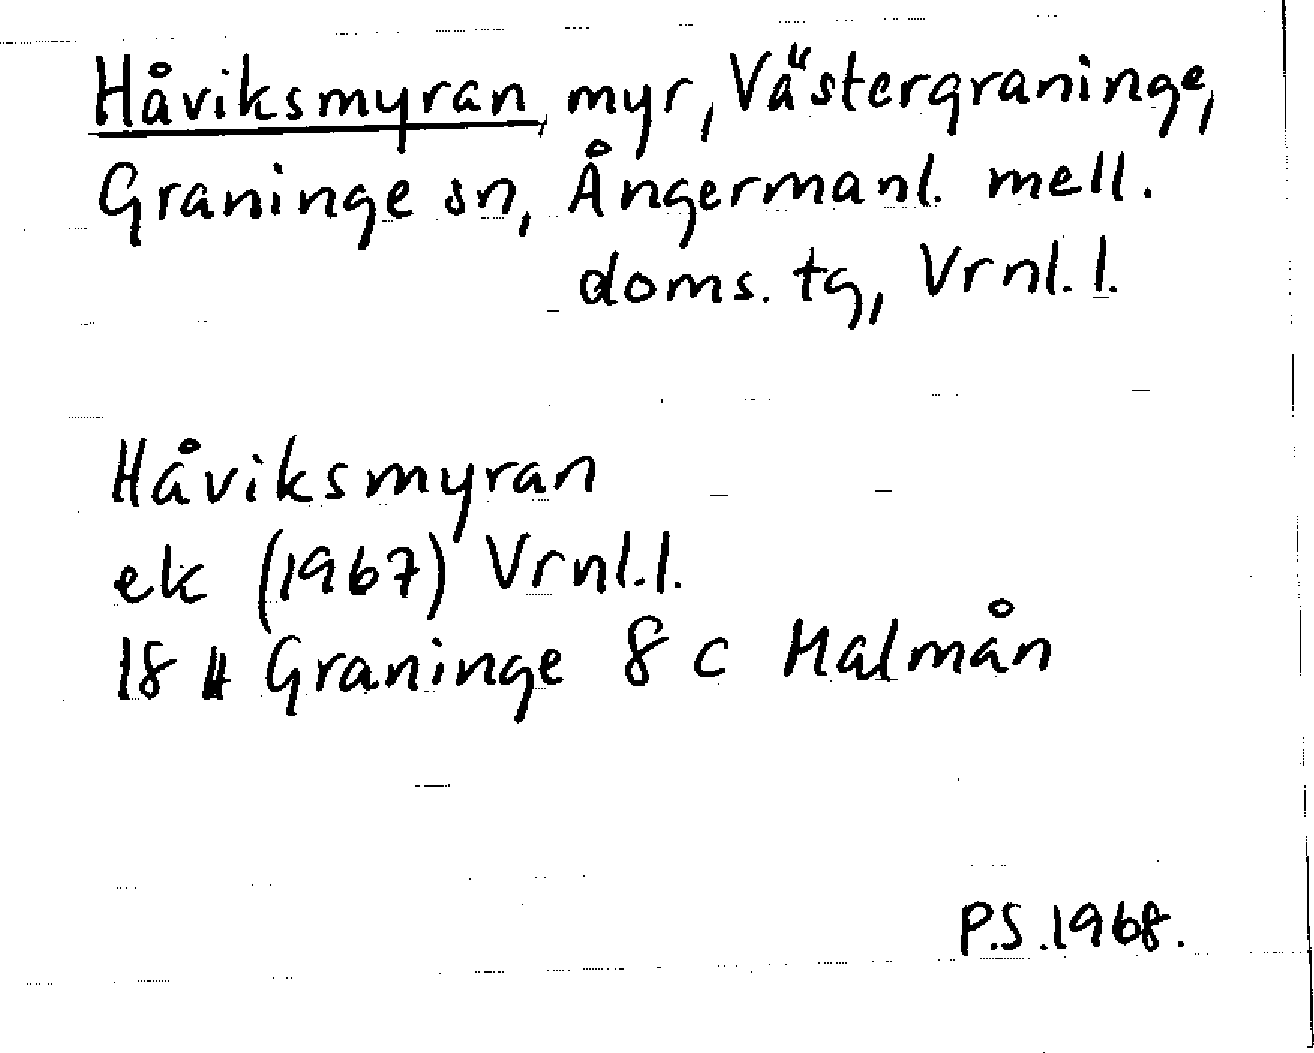 Håviksmyran, myr, Västergraninge,
Graninge sn, Ångermanl. mell.
doms. tg, Vrnl. l.
Håviksmyran
ek (1967) Vrnl. l.
18 H Graninge 8 c Malmån
P.S. 1968.